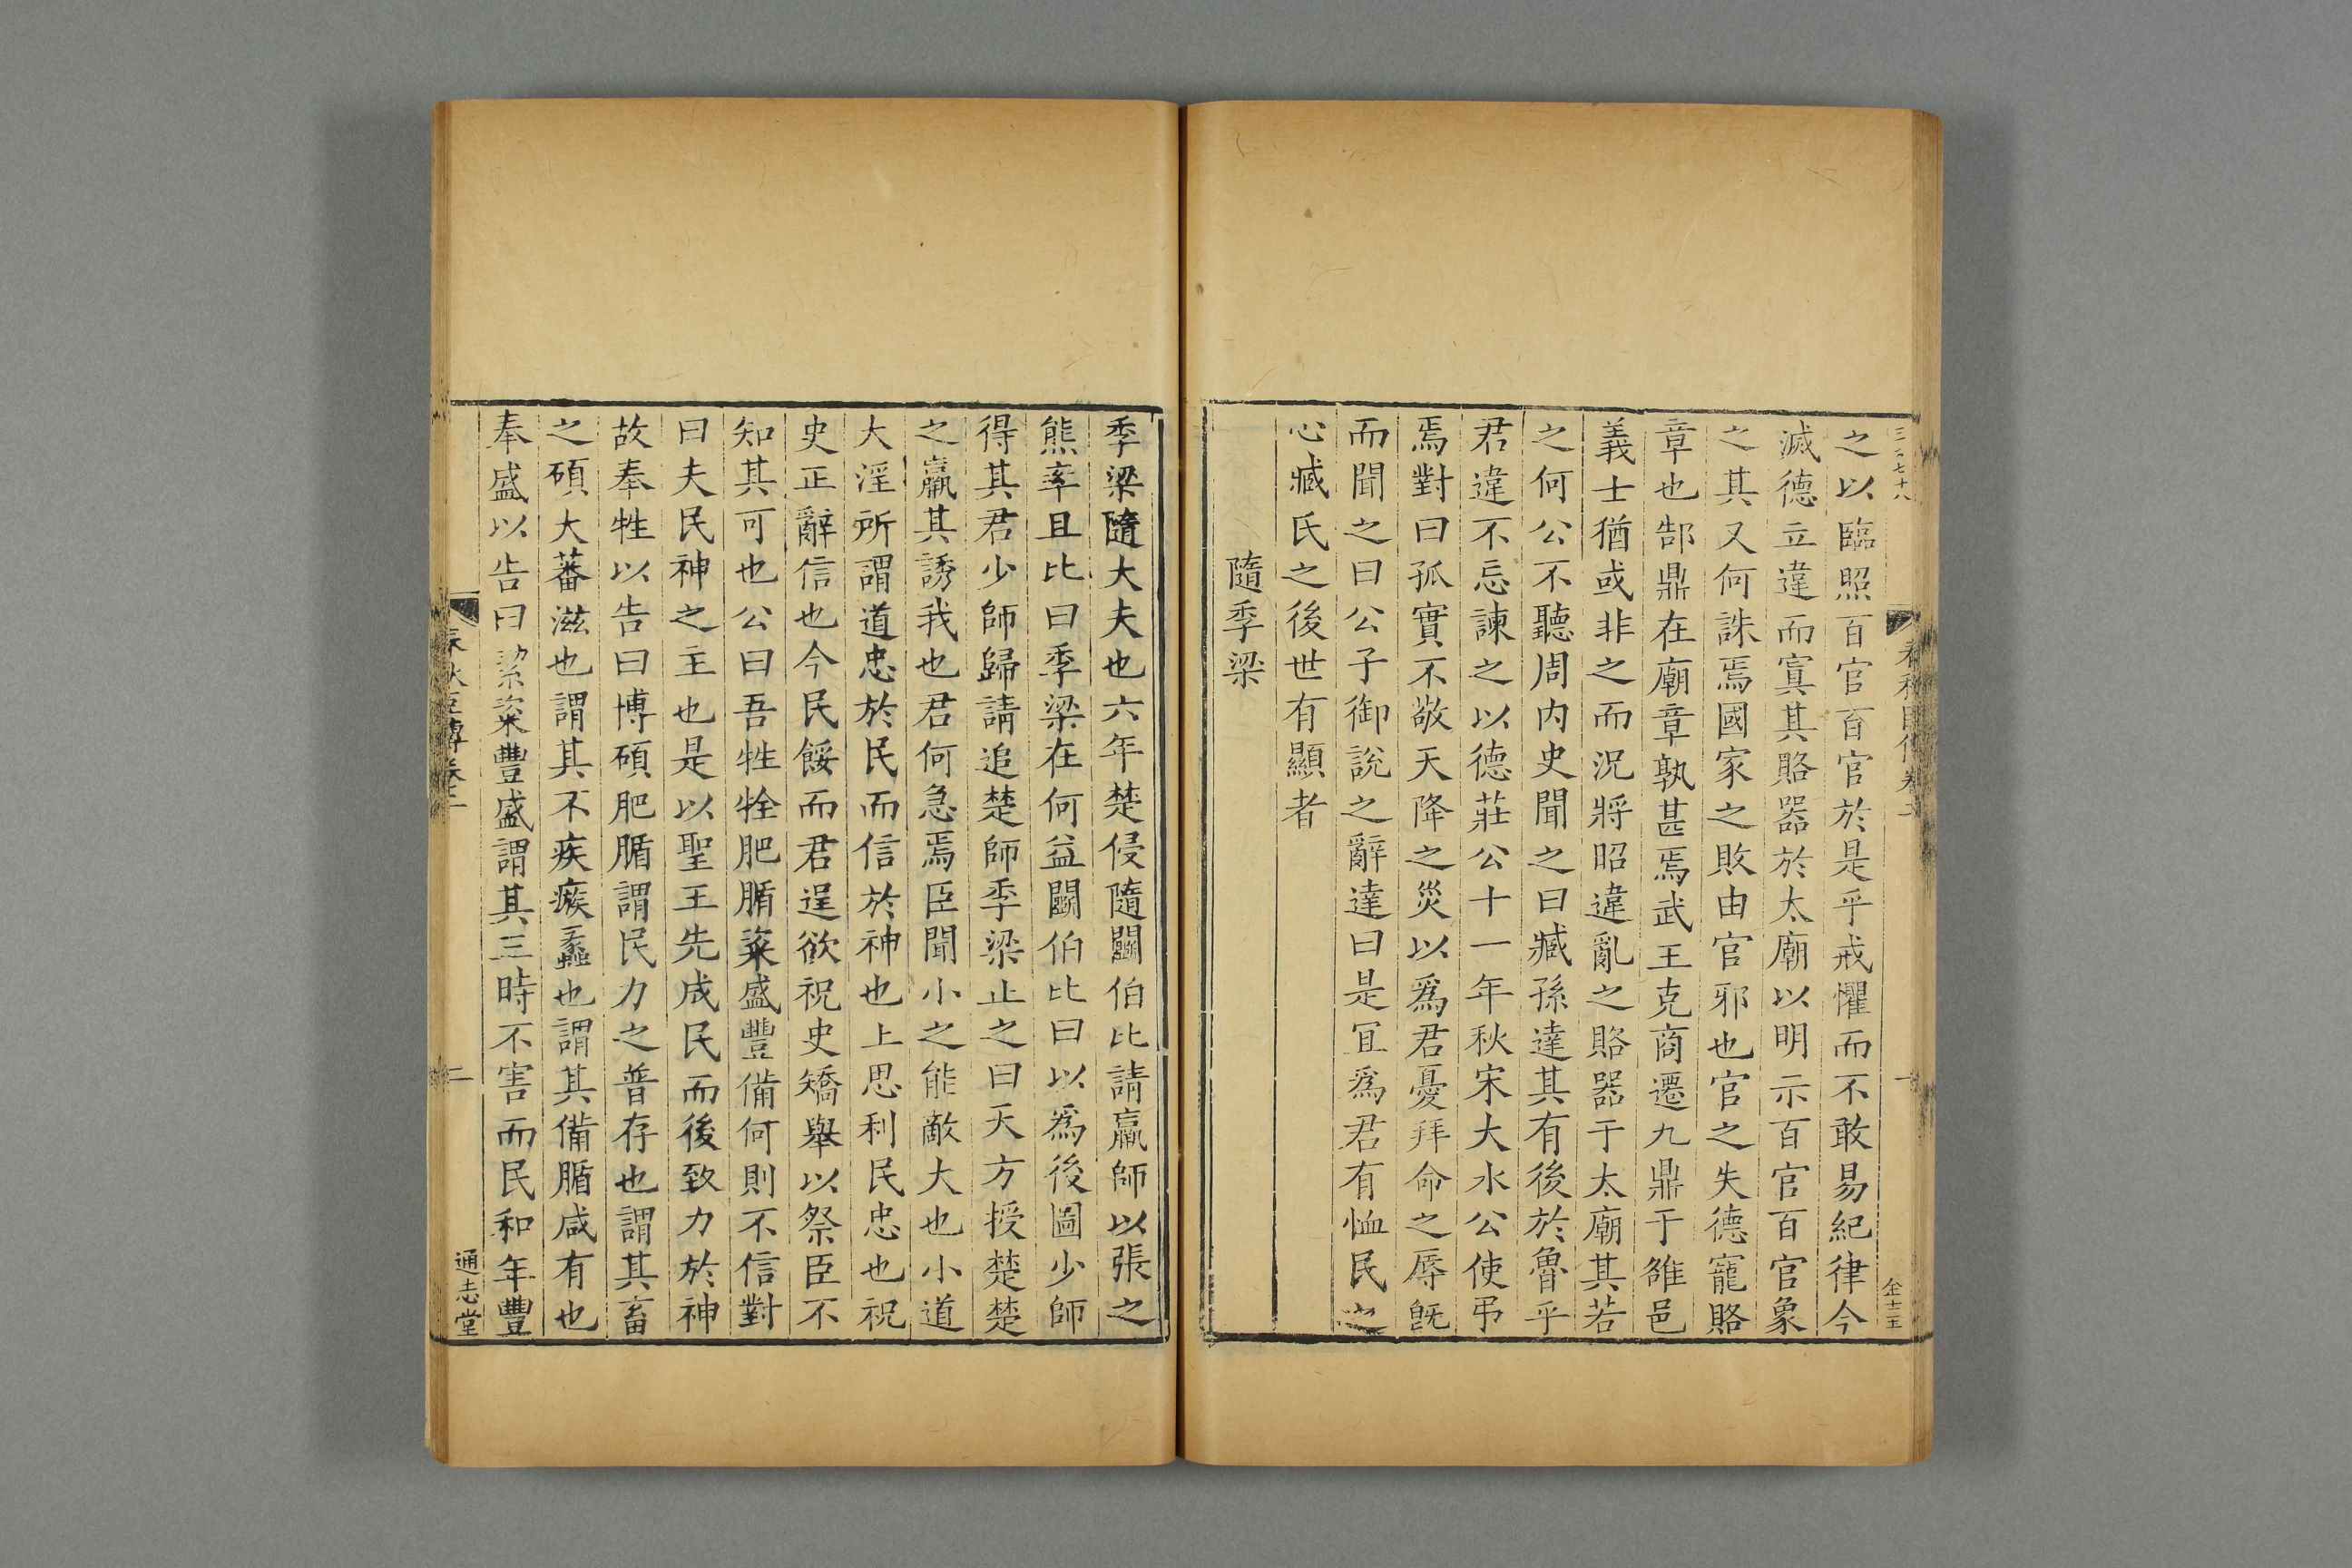 之以臨照百官百官於是乎戒懼而不敢易紀律今
滅德立違而寘其賂器於太廟以明示百官百官象
之其又何誅焉國家之敗由官邪也官之失德寵賂
章也郜鼎在廟章孰甚焉武王克商遷九鼎于雒邑
義士猶或非之而況將昭違亂之賂器于太廟其若
之何公不聽周内史聞之曰臧孫達其有後於魯乎
君違不忘諫之以德莊公十一年秋宋大水公使弔
焉對曰孤實不敬天降之災以爲君憂拜命之辱旣
而聞之曰公子御說之辭達曰是宜爲君有恤民之
心臧氏之後世有顯者
隨季梁
季梁隨大夫也六年楚侵隨鬭伯比請羸師以張之
熊率且比曰季梁在何益鬭伯比曰以爲後圖少師
得其君少師歸請追楚師季梁止之曰天方授楚楚
之羸其誘我也君何急焉臣聞小之能敵大也小道
大淫所謂道忠於民而信於神也上思利民忠也祝
史正辭信也今民餒而君逞欲祝史矯舉以祭臣不
知其可也公曰吾牲牷肥腯粢盛豐備何則不信對
曰夫民神之主也是以聖王先成民而後致力於神
故奉牲以告曰博碩肥腯謂民力之普存也謂其畜
之碩大蕃滋也謂其不疾瘯蠡也謂其備腯咸有也
奉盛以告曰絜粢豐盛謂其三時不害而民和年豐
春秋臣傳卷二
二
通志堂